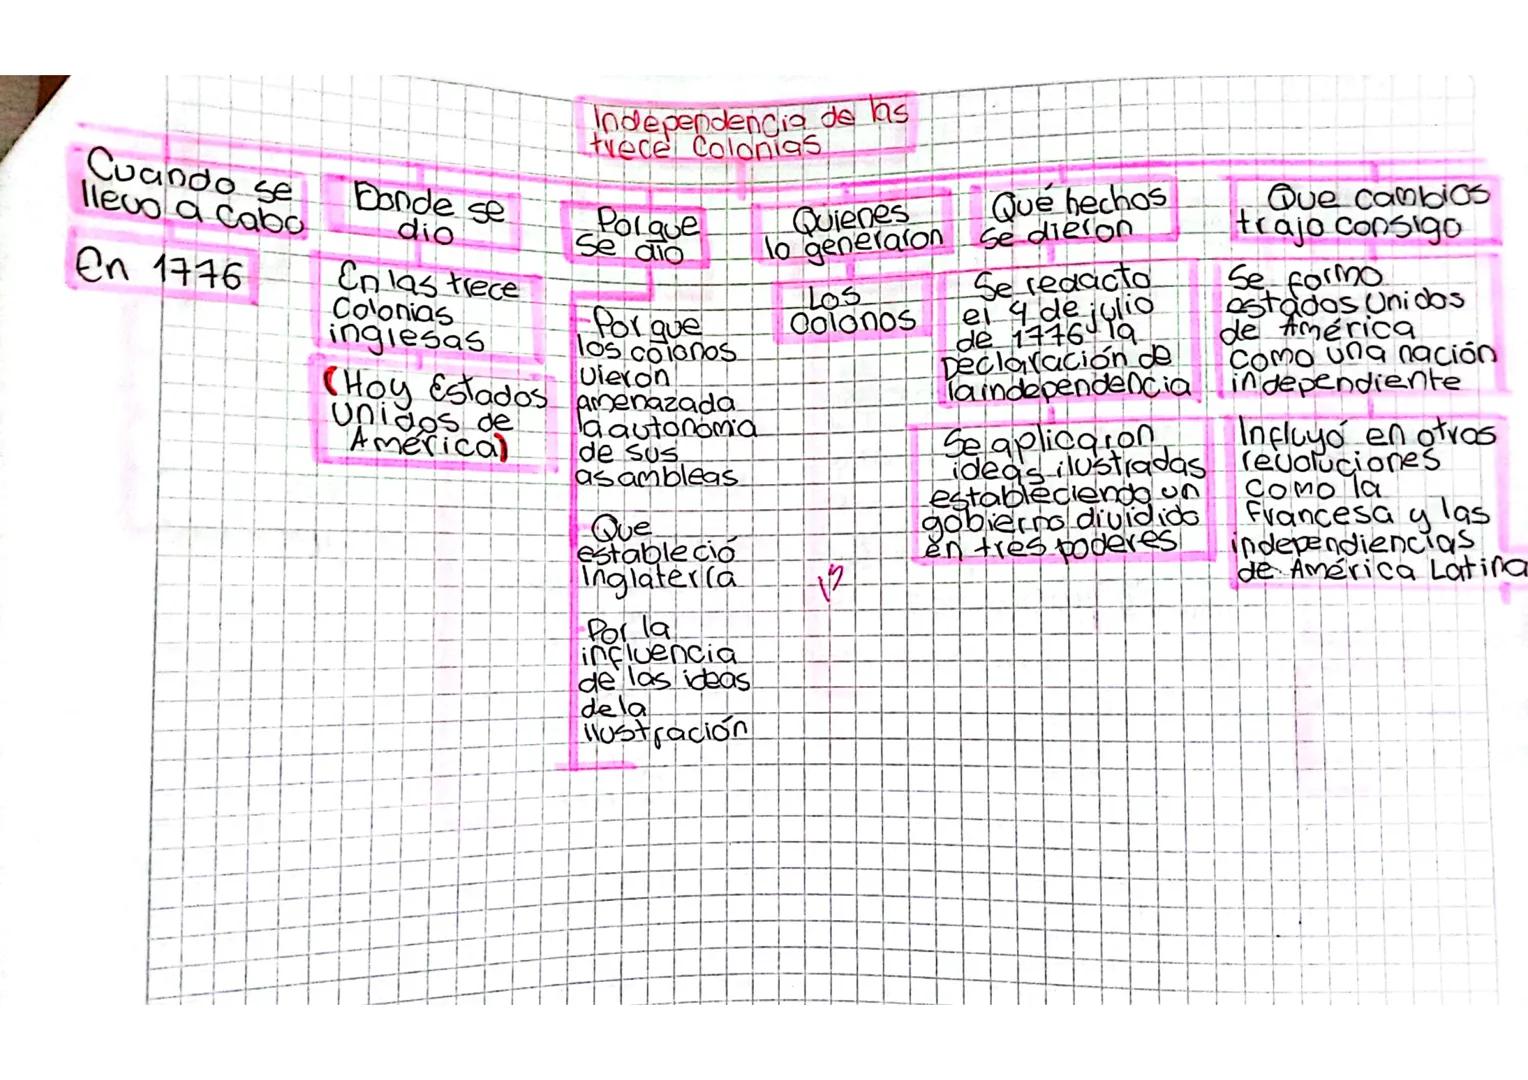 Independencia de las
trece Colonias
Cuando se
llevo a cabo
En 1776
Donde se
dio
En las trece
Colonias
inglesas
(Hoy Estados
Unidos de
América)
Porque
se dio
-Por que
los colonos
vieron
amenazada
la autonomia
de sus
asambleas
-Que
estableció
Inglaterra
-Por la
influencia
de las ideas
de la
Ilustración
Quienes
lo generaron
Los
Colonos
Qué hechos
se dieron
Se redacto
el 4 de julio
de 1776 la
Declaración de
la independencia
Se aplicaron
ideas ilustradas
estableciendo un
gobierno dividido
en tres poderes
Que cambios
trajo consigo
Se formo
estados Unidos
de América
como una nación
independiente
Influyó en otras
revoluciones
como la
francesa y las
independiencias
de América Latina